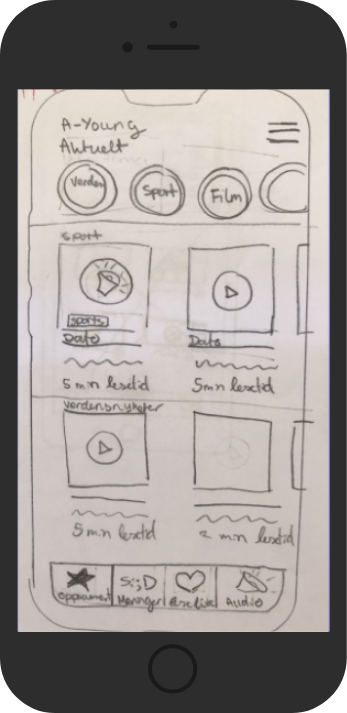 A-Young
Aktuelt
Verden
Sport
Film
Sport
sports
Dato
Dato
5 min lesetid
5 min lesetid
Verdensnyheter
5 min lesetid
2 min lesetid
S;;D
Meninger
Audio